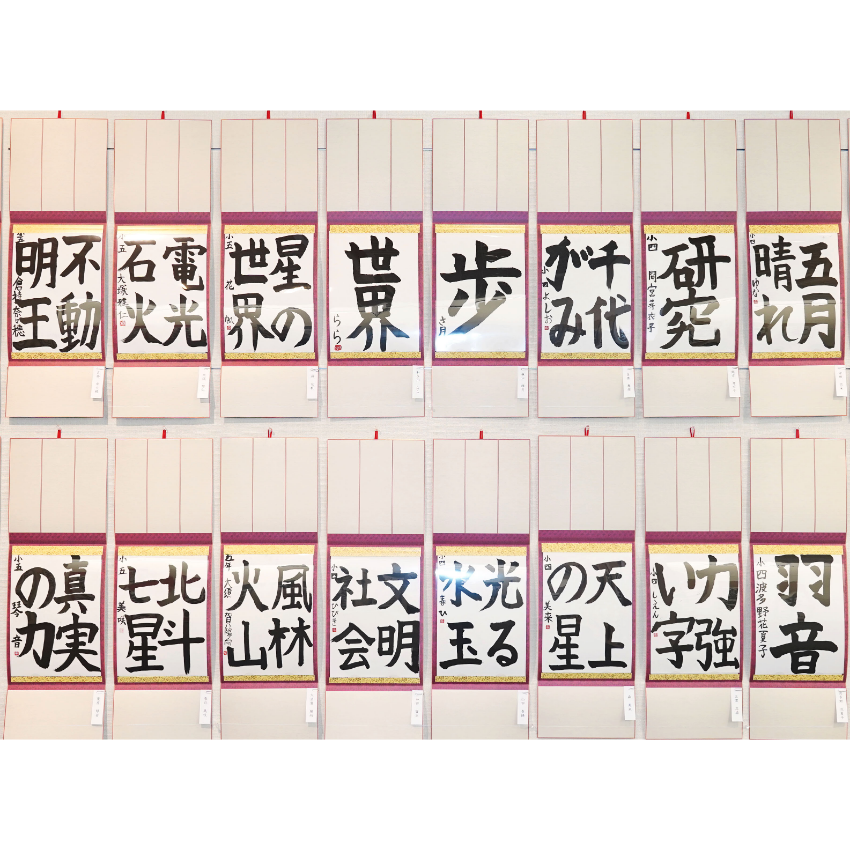 五月
晴れ
小四
研究
小四
千代
がみ
小四 よしお
歩
き月
世界
らら
星の
世界
小五
電光
石火
小五 大塚
不動
明王
羽音
小四 波多野花夏子
力強
い字
小四 しえん
天上
の星
小四 美来
光る
水玉
小四
文明
社会
小四 ひびき
風林
火山
五年
北斗
七星
小五 美咲
真実
の力
小五 琴音